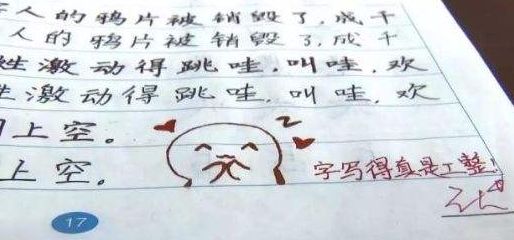 人的鸦片被销毁了,成千
人的鸦片被销毁了,成千
姓激动得跳哇,叫哇,欢
姓激动得跳哇,叫哇,欢
上空。
上空。
字写得真是工整!
17